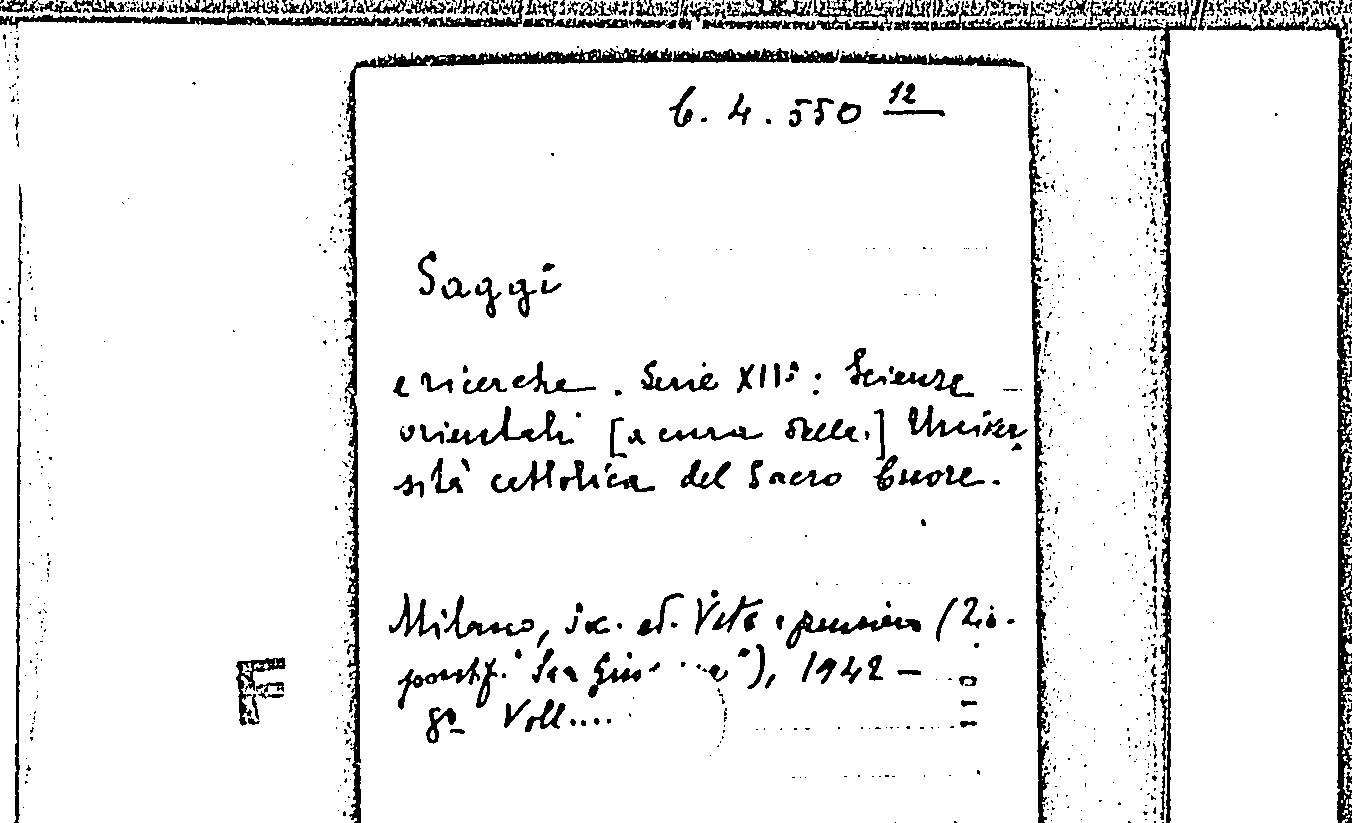 C. 4. 550 12
Saggi
e ricerche. Serie XIIª: Scienze
orientali [a cura della.] Univer
sità cattolica del Sacro Cuore.
Milano, soc. ed. Vita e pensiero (Tip.
pontif. "San Giu
"), 1942 -
8º Voll....
F